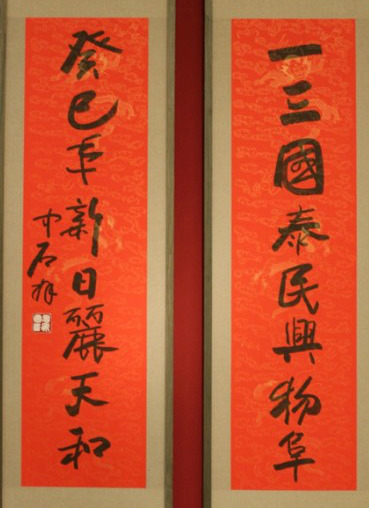 一三國泰民興物阜
癸巳年新日麗天和
中石拜